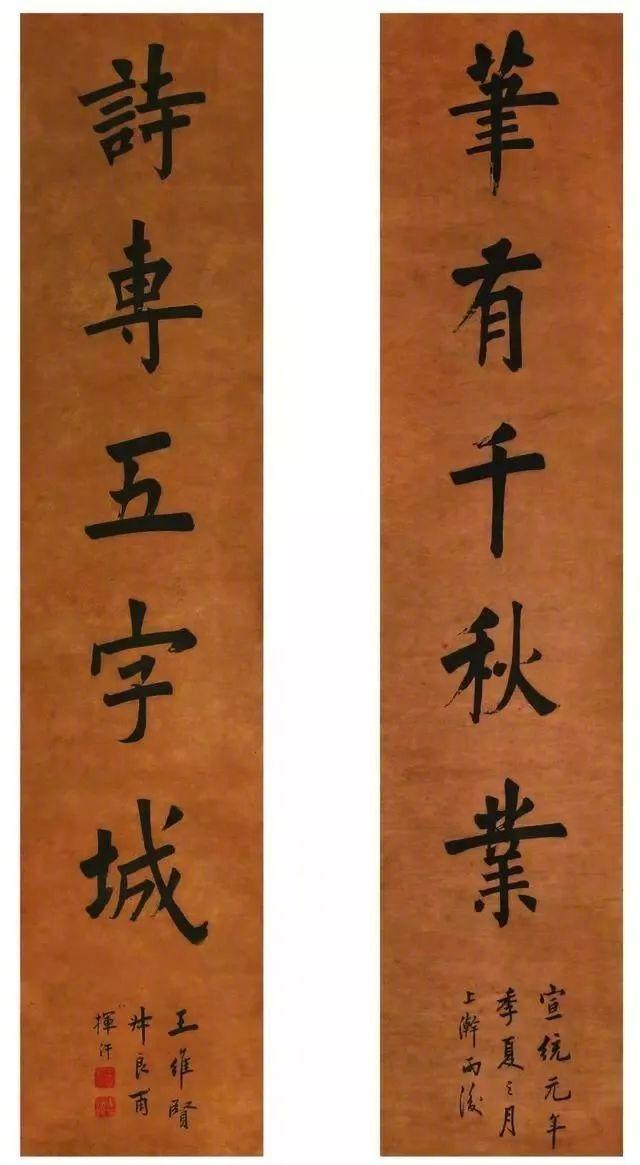 筆有千秋業
宣統元年
季夏之月
上澣雨後
詩專五字城
王維賢
叔良甫
揮汗